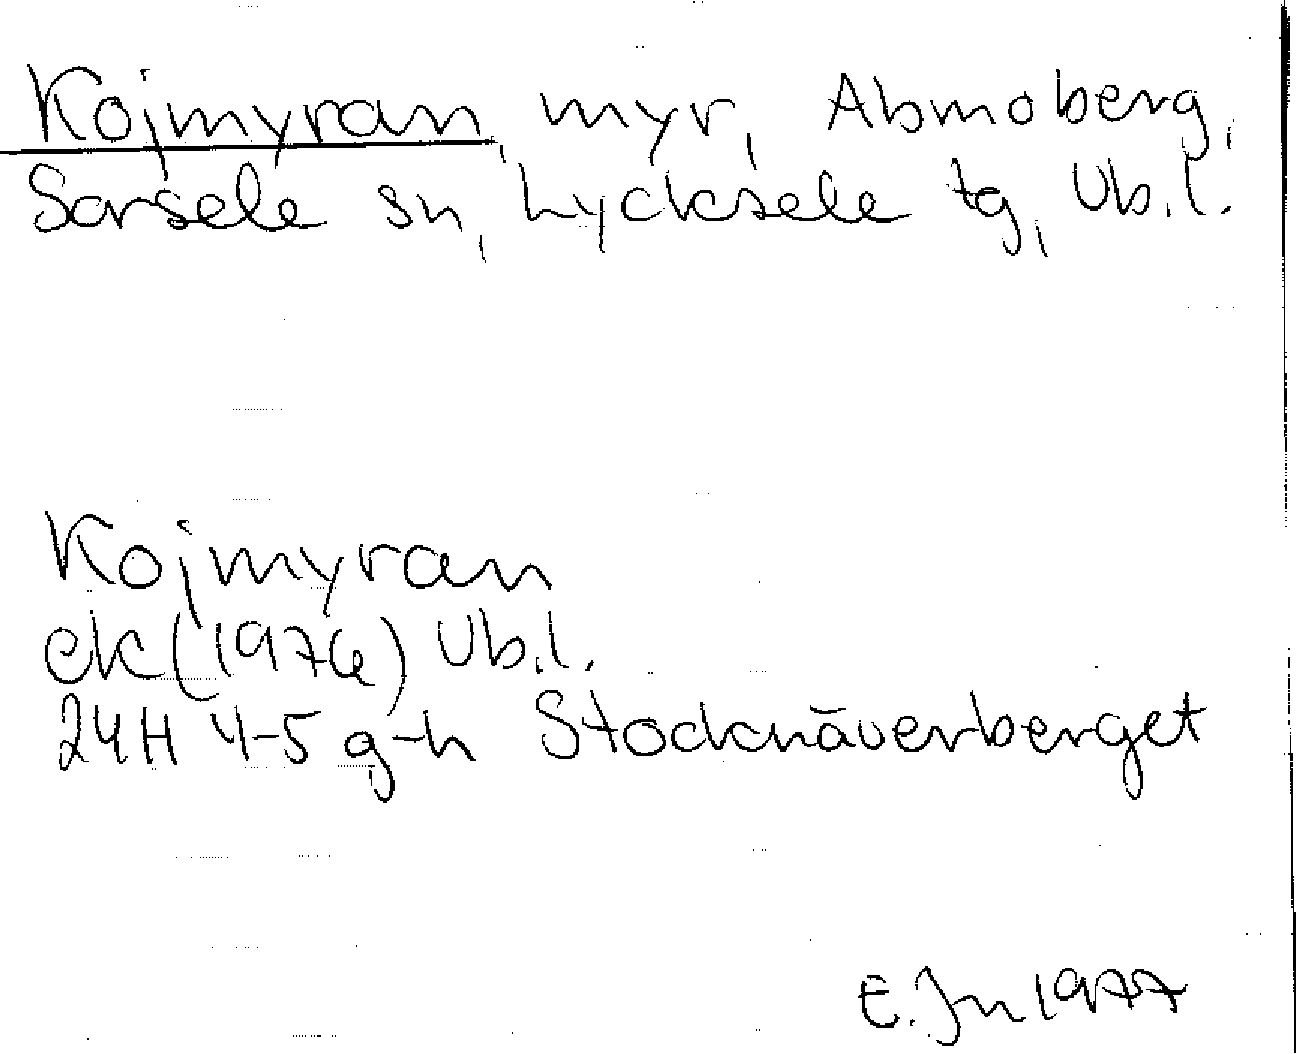 Kojmyran, myr, Abmoberg,
Sorsele sn, Lycksele tg, Vb.l.
Kojmyran
ek (1976) Vb.l.
24H 4-5 g-h Stocknäverberget
E. Jn 1977